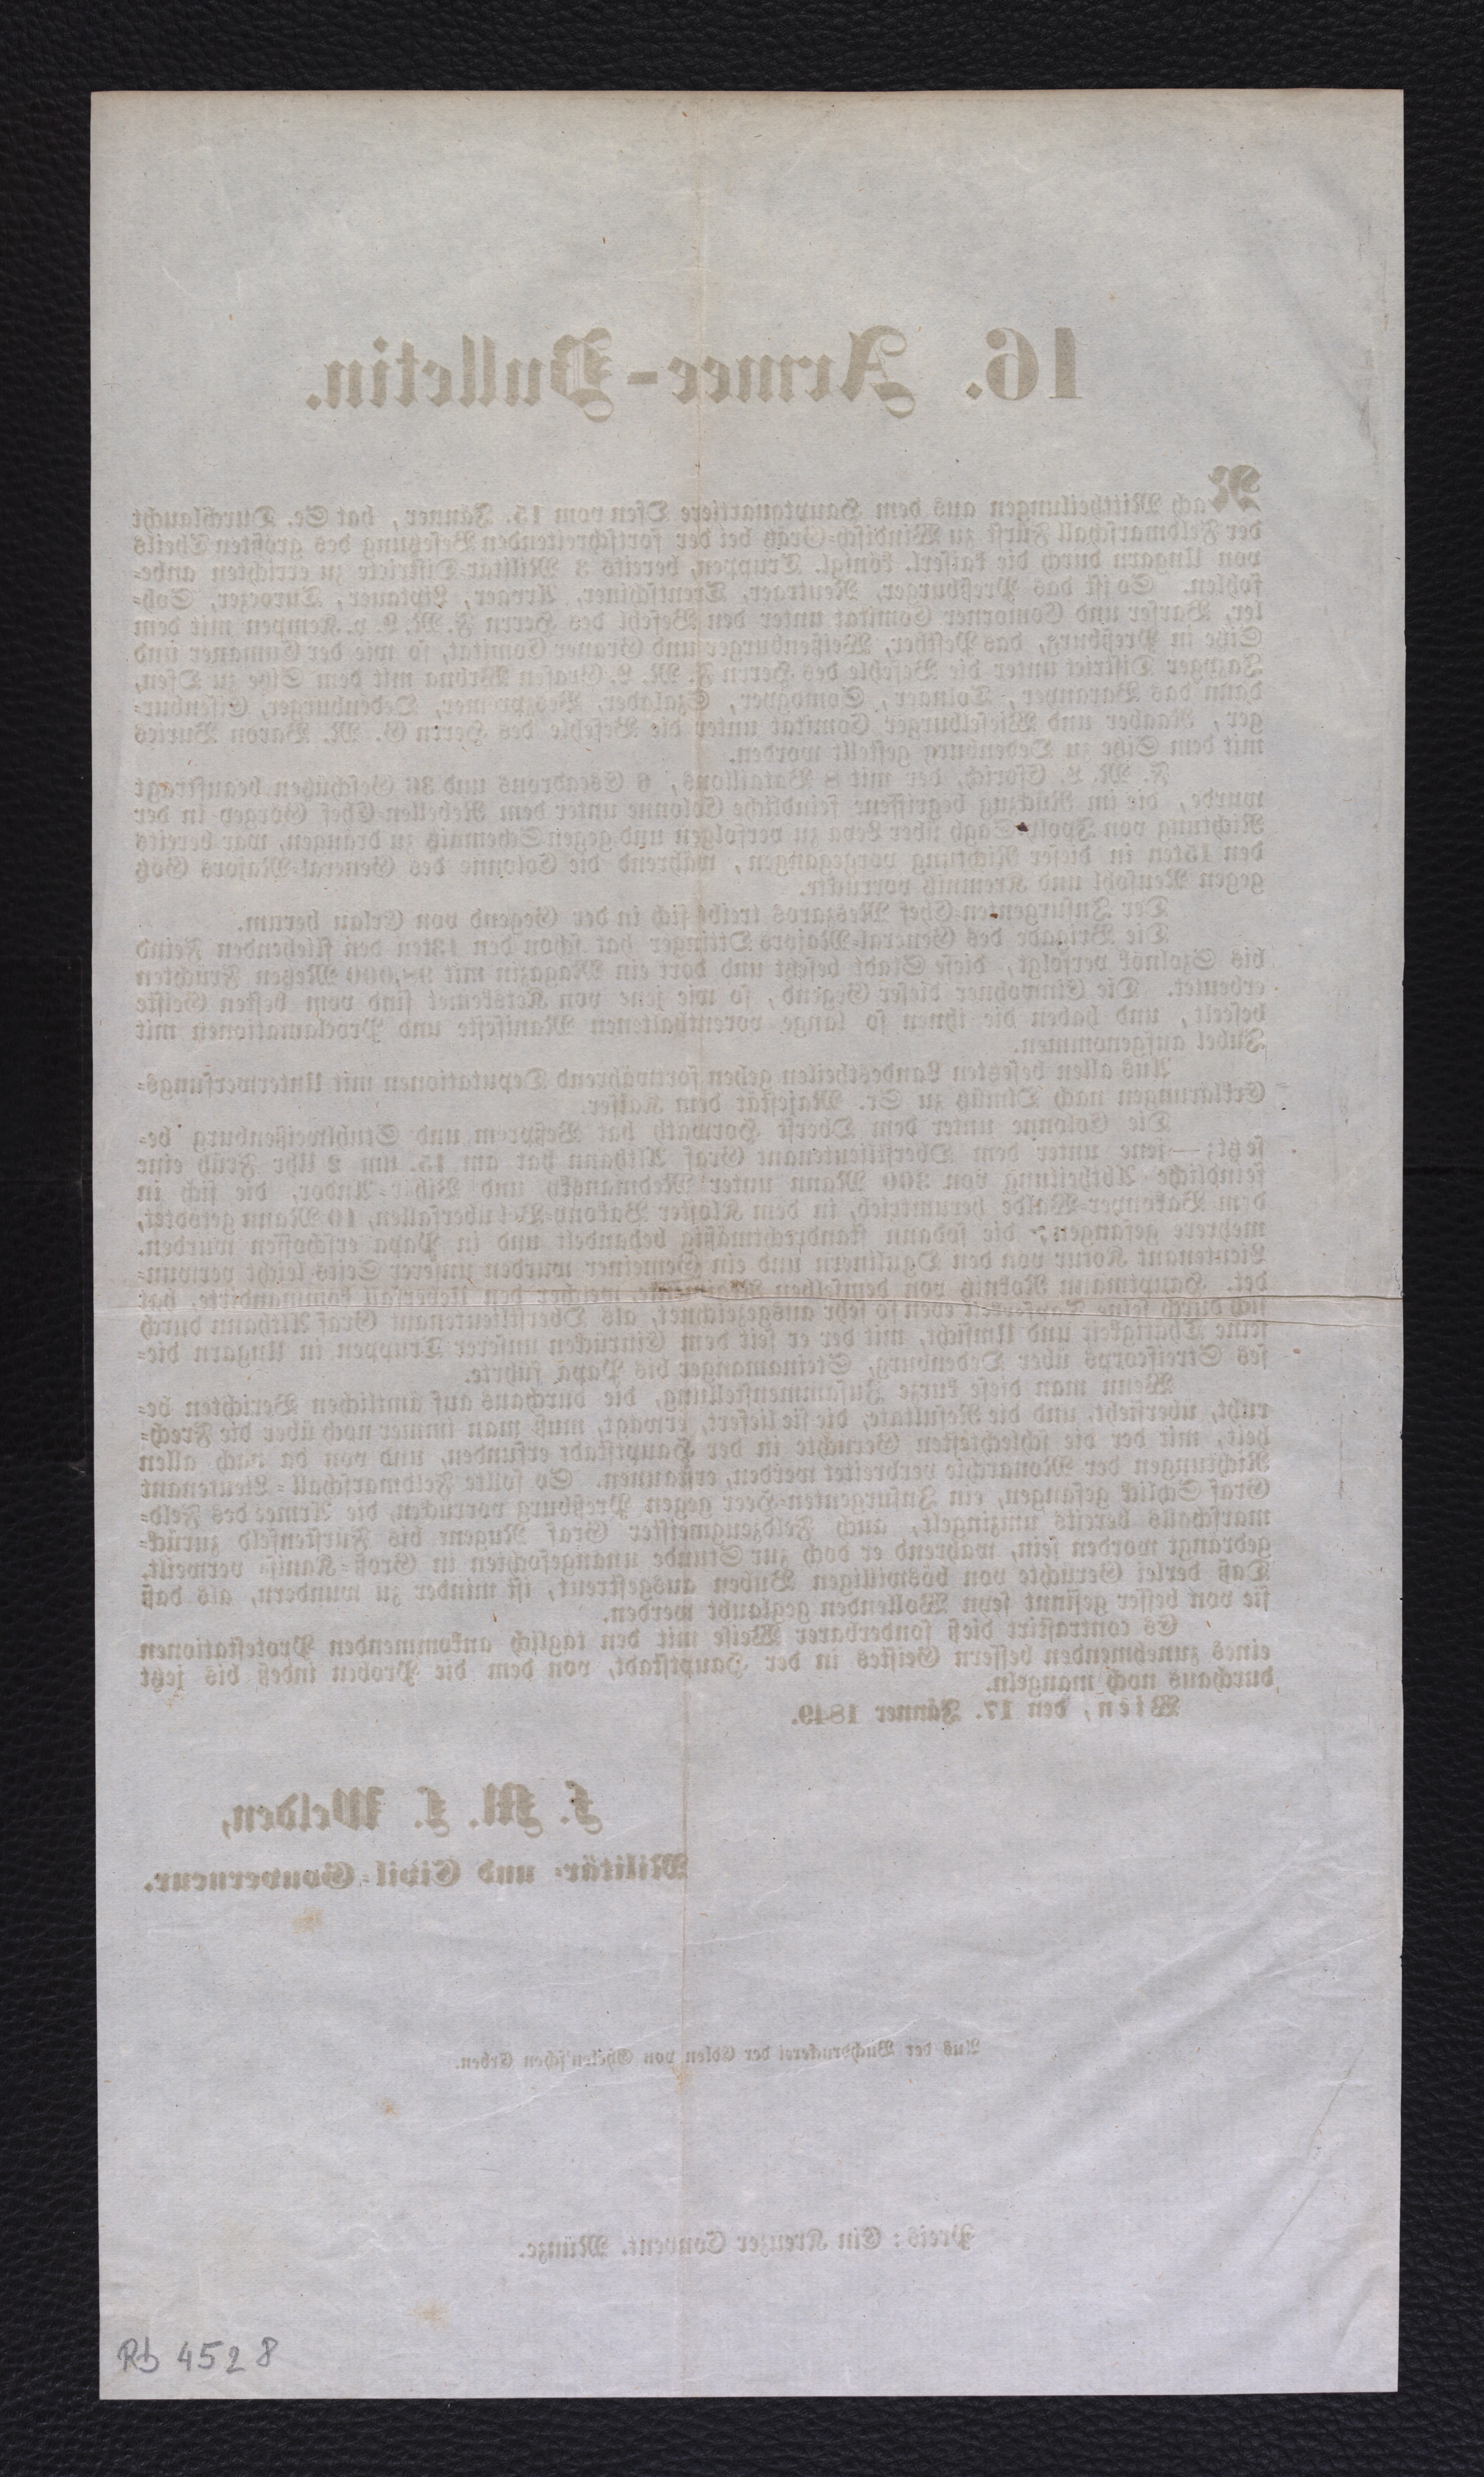 16. Armee-Bulletin.
Nach Mittheilungen aus dem Hauptquartiere Ofen vom 15. Jänner, hat Se. Durchlaucht
der Feldmarschall Fürst zu Windisch-Grätz bei der fortschreitenden Besetzung des größten Theils
von Ungarn durch die kaiserl. königl. Truppen, bereits 3 Militär-Districte zu errichten anbe-
fohlen. So ist das Preßburger, Neutraer, Trentschiner, Arvaer, Liptauer, Turoczer, Soh-
ler, Barser und Comorner Comitat unter den Befehl des Herrn F. M. L. v. Kempen mit dem
Sitze in Preßburg, das Pesther, Weißenburger und Graner Comitat, so wie der Cumaner und
Jazyger District unter die Befehle des Herrn F. M. L. Grafen Wrbna mit dem Sitze zu Ofen,
dann das Baranyer, Tolnaer, Somogyer, Szalader, Veszprimer, Oedenburger, Eisenbur-
ger, Raaber und Wieselburger Comitat unter die Befehle des Herrn G. M. Baron Burits
mit dem Sitze zu Oedenburg gestellt worden.
F. M. L. Csorich, der mit 8 Bataillons, 6 Escadrons und 36 Geschützen beauftragt
wurde, die im Rückzug begriffene feindliche Colonne unter dem Rebellen-Chef Görgey in der
Richtung von Ipoly-Sagh über Leva zu verfolgen und gegen Schemnitz zu drängen, war bereits
den 15ten in dieser Richtung vorgegangen, während die Colonne des General-Majors Götz
gegen Neusohl und Kremnitz vorrückte.
Der Insurgenten-Chef Meszaros treibt sich in der Gegend von Erlau herum.
Die Brigade des General-Majors Ottinger hat schon den 13ten den fliehenden Feind
bis Szolnok verfolgt, diese Stadt besetzt und dort ein Magazin mit Metzen Früchten
erbeutet. Die Einwohner dieser Gegend, so wie jene von Ketskemet sind vom besten Geiste
beseelt, und haben die ihnen so lange vorenthaltenen Manifeste und Proclamationen mit
Jubel aufgenommen.
Aus allen besetzten Landestheilen gehen fortwährend Deputationen mit Unterwerfungs-
Erklärungen nach Olmütz zu Sr. Majestät dem Kaiser.
Die Colonne unter dem Oberst Horvath hat Veßprem und Stuhlweissenburg be-
setzt; — jene unter dem Oberstlieutenant Graf Althann hat am 15. um 2 Uhr Früh eine
feindliche Abtheilung von 300 Mann unter und die sich in
dem Bakonyer-Walde herumtrieb, in dem Kloster Bakony-Bél überfallen, 10 Mann getödtet,
mehrere gefangen, die sodann standrechtmäßig behandelt und in Papa erschossen wurden.
Lieutenant Kotur von den Ogulinern und ein Gemeiner wurden unserer Seits leicht verwun-
det. Hauptmann von demselben welcher den Ueberfall kommandirte, hat
sich durch seine Tapferkeit eben so sehr ausgezeichnet, als Oberstlieutenant Graf Althann durch
seine Thätigkeit und Umsicht, mit der er seit dem Einrücken unserer Truppen in Ungarn die-
ses Streifcorps über Oedenburg, Steinamanger bis Papa führte.
Wenn man diese kurze Zusammenstellung, die durchaus auf ämtlichen Berichten be-
ruht, übersieht, und die Resultate, die sie liefert, erwägt, muß man immer noch über die Frech-
heit, mit der die schlechtesten Gerüchte in der Hauptstadt erfunden, und von da nach allen
Richtungen der Monarchie verbreitet werden, erstaunen. So sollte Feldmarschall-Lieutenant
Graf Schlick gefangen, ein Insurgenten-Heer gegen Preßburg vorrücken, die Armee des Feld-
marschalls bereits umzingelt, auch Feldzeugmeister Graf Nugent bis Fürstenfeld zurück-
gedrängt worden sein, während er doch zur Stunde unangefochten in Groß-Kanisa verweilt.
Daß derlei Gerüchte von böswilligen Buben ausgestreut, ist minder zu wundern, als daß
sie von besser gesinnt seyn Wollenden geglaubt werden.
Es contrastirt dieß sonderbarer Weise mit den täglich ankommenden Protestationen
eines zunehmenden bessern Geistes in der Hauptstadt, von dem die Proben indeß bis jetzt
durchaus noch mangeln.
Wien, den 17. Jänner 1849.
F. M. L. Welden,
Militär- und Civil-Gouverneur.
Aus der Buchdruckerei der Edlen von Ghelen'schen Erben.
Preis: Ein Kreuzer Convent. Münze.
Rb 4528